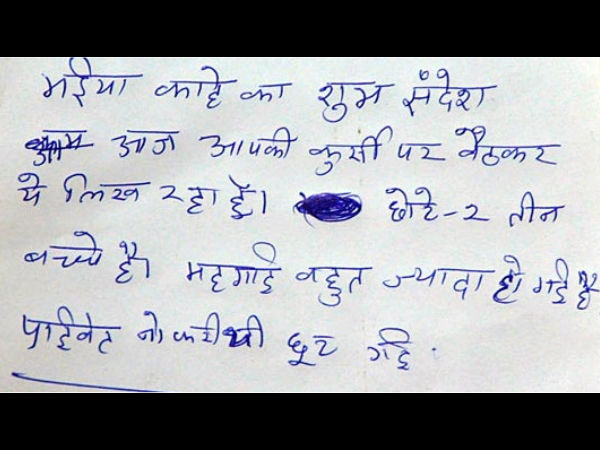 मईया काहे का शुभ संदेश
आज आपकी कुर्सी पर बैठकर
ये लिख रहा हूँ। छोटे-२ तीन
बच्चे है। महगाई बहुत ज्यादा हो गई है
प्राईवेट नोकरी थी छूट गई.